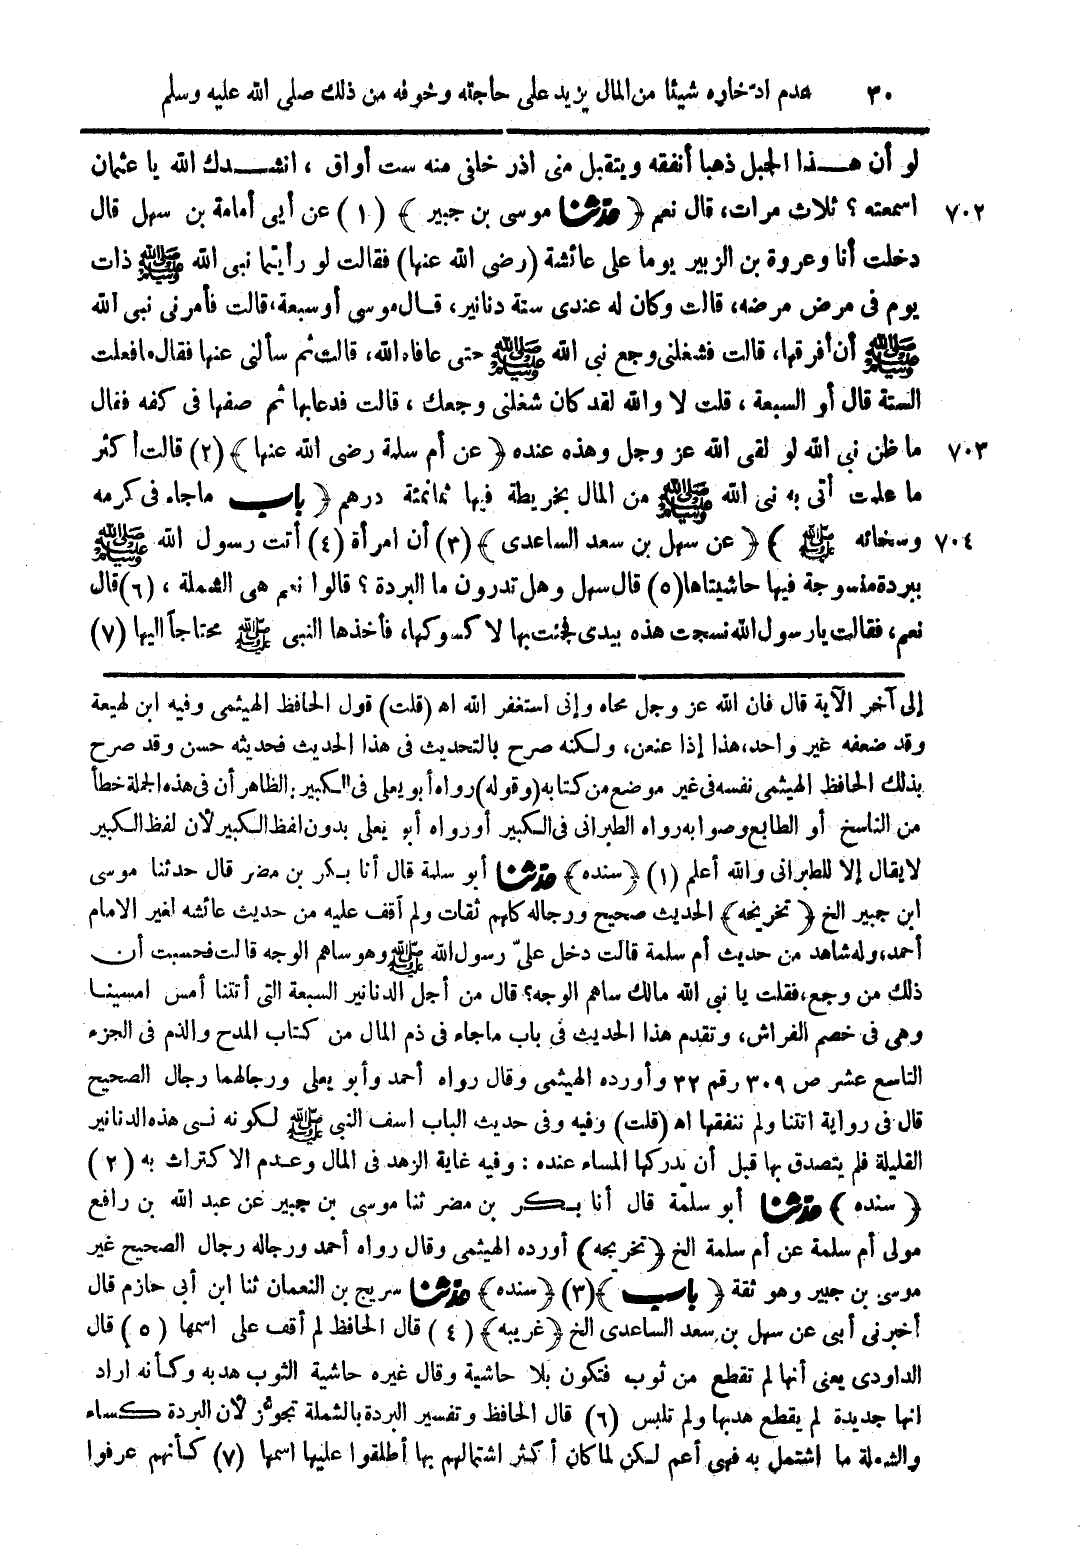 ٣٠ عدم ادخاره شيئا من المال يزيد على حاجته وخوفه من ذلك صلى الله عليه وسلم
لو أن هذا الجبل ذهبا أنفقه ويتقبل منى اذر خلفى منه ست أواق ، انشدك الله يا عثمان
٧٠٢ اسمعته ؟ ثلاث مرات، قال نعم ﴿ حدثنا موسى بن جبير ﴾ (١) عن أبى أمامة بن سهل قال
دخلت أنا وعروة بن الزبير يوما على عائشة (رضى الله عنها) فقالت لو رأيتما نبى الله ﷺ ذات
يوم فى مرض مرضه، قالت وكان له عندى ستة دنانير، قال موسى أو سبعة، قالت فأمرنى نبى الله
ﷺ أن أفرقها، قالت فشغلنى وجع نبى الله ﷺ حتى عافاه الله، قالت ثم سألنى عنها فقال ما فعلت
الستة قال أو السبعة ، قلت لا والله لقد كان شغلنى وجعك ، قالت فدعا بها ثم صفها فى كفه فقال
٧٠٣ ما ظن نبى الله لو لقى الله عز وجل وهذه عنده ﴿ عن أم سلمة رضى الله عنها ﴾ (٢) قالت أكثر
ما علمت أتى به نبى الله ﷺ من المال بخريطة فيها ثمانمئة درهم ﴿ باب ماجاء فى كرمه
٧٠٤ وسخائه ﷺ ﴾ ﴿ عن سهل بن سعد الساعدى ﴾ (٣) أن امرأة (٤) أتت رسول الله ﷺ
ببردة منسوجة فيها حاشيتاها (٥) قال سهل وهل تدرون ما البردة ؟ قالوا نعم هى الشملة ، (٦) قال
نعم، فقالت يا رسول الله نسجت هذه بيدى فجئت بها لا كسوكها، فأخذها النبى ﷺ محتاجاً اليها (٧)
إلى آخر الآية قال فان الله عز وجل محاه وإنى استغفر الله اه (قلت) قول الحافظ الهيثمى وفيه ابن لهيعة
وقد ضعفه غير واحد، هذا إذا عنعن، ولكنه صرح بالتحديث فى هذا الحديث فحديثه حسن وقد صرح
بذلك الحافظ الهيثمى نفسه فى غير موضع من كتابه (وقوله) رواه أبو يعلى فى الكبير : الظاهر أن فى هذه الجملة خطأ
من الناسخ أو الطابع وصوابه رواه الطبرانى فى الكبير أو رواه أبو يعلى بدون لفظ الكبير لأن لفظ الكبير
لا يقال إلا للطبرانى والله أعلم (١) ﴿ سنده ﴾ حدثنا أبو سلمة قال أنا بكر بن مضر قال حدثنا موسى
ابن جبير الخ ﴿ تخريجه ﴾ الحديث صحيح ورجاله كلهم ثقات ولم أقف عليه من حديث عائشه لغير الامام
أحمد، وله شاهد من حديث أم سلمة قالت دخل علىّ رسول الله ﷺ وهو ساهم الوجه قالت فحسبت أن
ذلك من وجع، فقلت يا نبى الله مالك ساهم الوجه؟ قال من أجل الدنانير السبعة التى أتتنا أمس امسينا
وهى فى خصم الفراش، وتقدم هذا الحديث فى باب ماجاء فى ذم المال من كتاب المدح والذم فى الجزء
التاسع عشر ص ٣٠٩ رقم ٣٢ وأورده الهيثمى وقال رواه أحمد وأبو يعلى ورجالهما رجال الصحيح
قال فى رواية اتتنا ولم ننفقها اه (قلت) وفيه وفى حديث الباب اسف النبى ﷺ لكونه نسى هذه الدنانير
القليلة فلم يتصدق بها قبل أن يدركها المساء عنده : وفيه غاية الزهد فى المال وعدم الاكتراث به (٢)
﴿ سنده ﴾ حدثنا أبو سلمة قال أنا بكر بن مضر ثنا موسى بن جبير عن عبد الله بن رافع
مولى أم سلمة عن أم سلمة الخ ﴿ تخريجه ﴾ أورده الهيثمى وقال رواه أحمد ورجاله رجال الصحيح غير
موسى بن جبير وهو ثقة ﴿ باب ﴾ (٣) ﴿ سنده ﴾ حدثنا سريج بن النعمان ثنا ابن أبى حازم قال
أخبرنى أبى عن سهل بن سعد الساعدى الخ ﴿ غريبه ﴾ (٤) قال الحافظ لم أقف على اسمها (٥) قال
الداودى يعنى أنها لم تقطع من ثوب فتكون بلا حاشية وقال غيره حاشية الثوب هدبه وكأنه اراد
انها جديدة لم يقطع هدبها ولم تلبس (٦) قال الحافظ وتفسير البردة بالشملة تجوز لأن البردة كساء
والشملة ما اشتمل به فهى أعم لكن لما كان أكثر اشتمالهم بها أطلقوا عليها اسمها (٧) كأنهم عرفوا